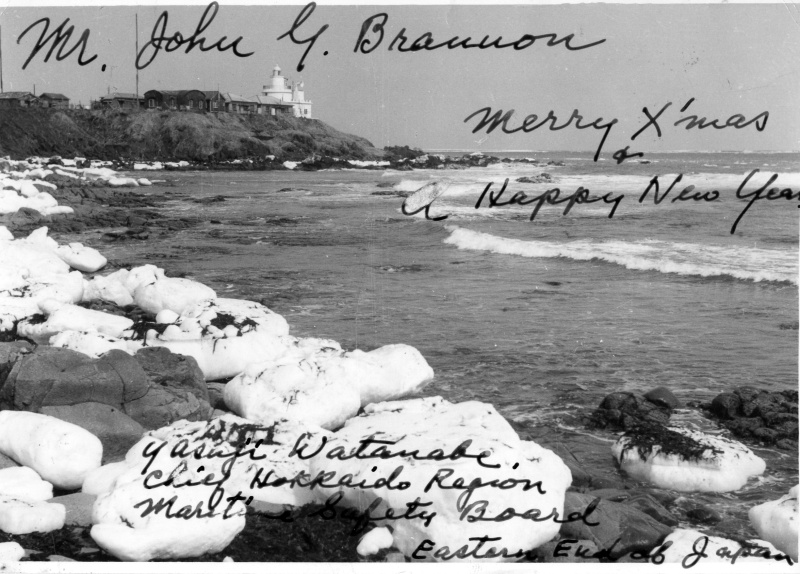 Mr. John Y. Brannon
Merry X'mas
&
A Happy New Year
Yasuji Watanabe
Chief Hokkaido Region
Maritime Safety Board
Eastern End of Japan